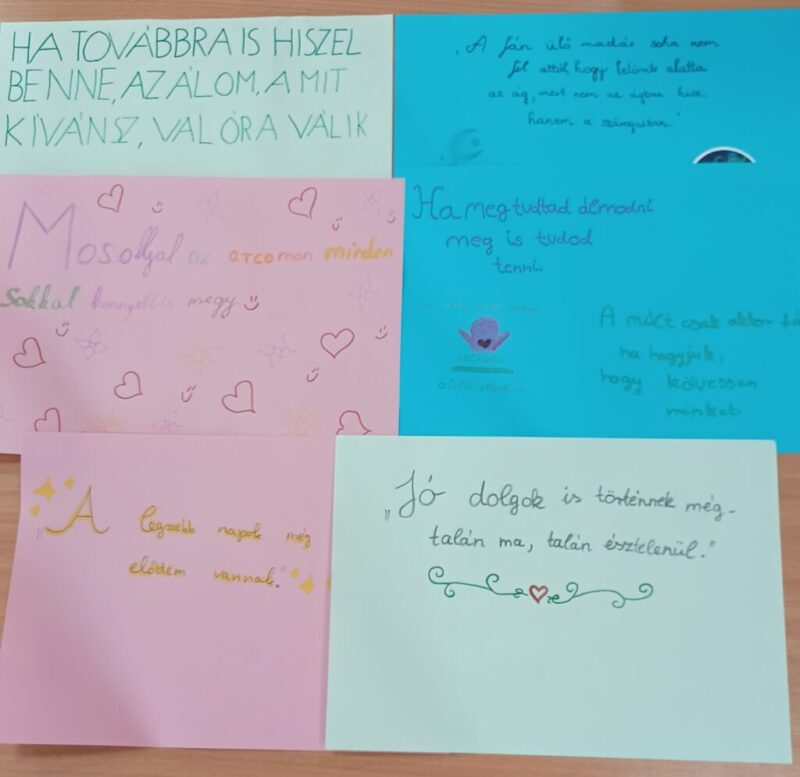 HA TOVÁBBRA IS HISZEL
BENNE, AZ ÁLOM, AMIT
KÍVÁNSZ, VALÓRA VÁLIK
„A fán ülő madár soha nem
fél attól, hogy letörik alatta
az ág, mert nem az ágban hisz,
hanem a szárnyaiban."
Mosollyal az arcomon minden
sokkal könnyebben megy
Ha meg tudtad álmodni
meg is tudod
tenni.
A múlt csak akkor
ha hagyjuk,
hogy kövessen
minket
„A legszebb napok még
előttem vannak."
„Jó dolgok is történnek még-
talán ma, talán észtelenül."